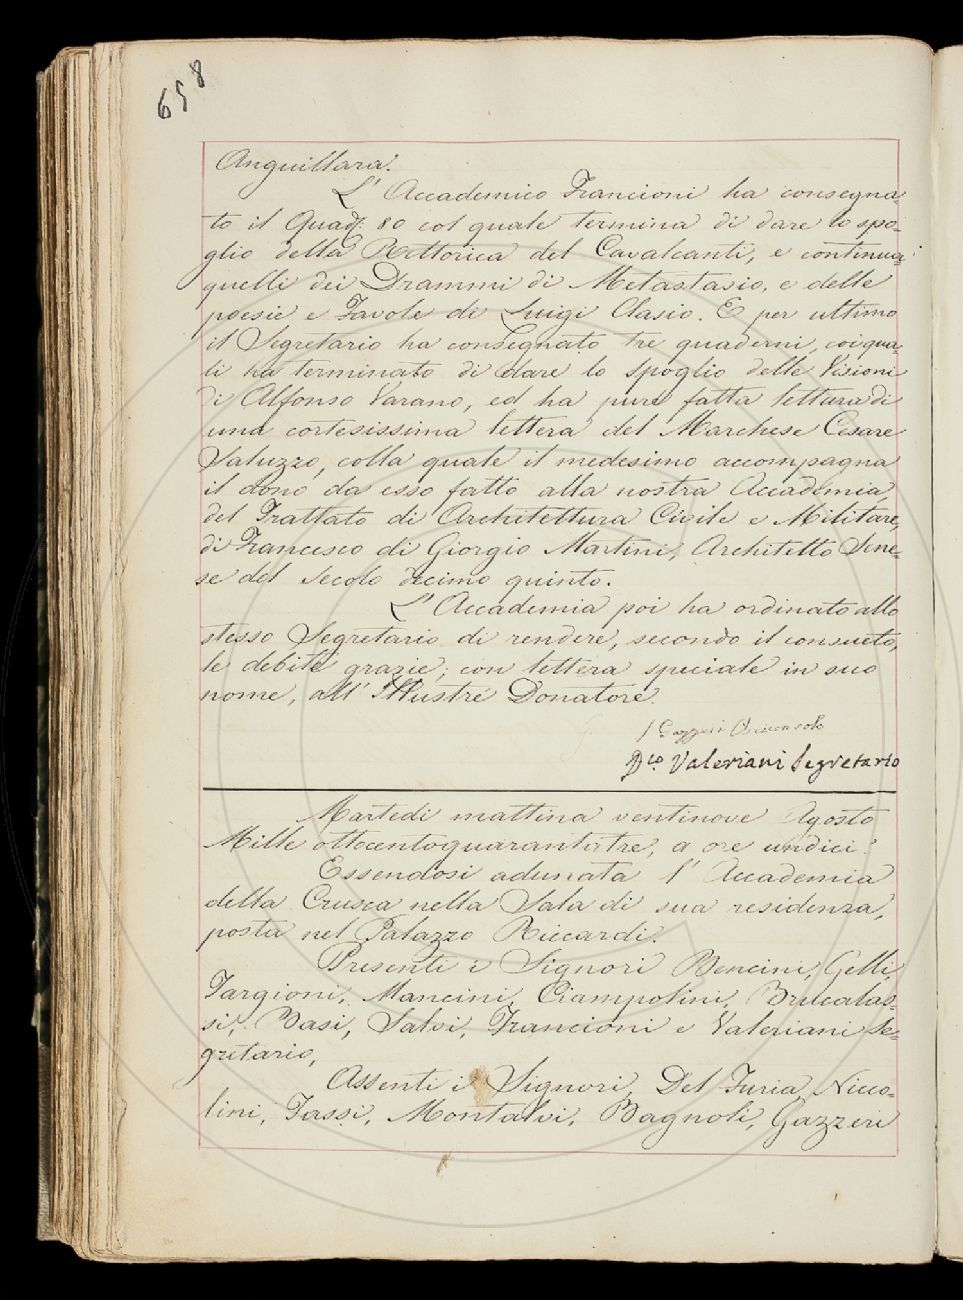 658
Anguillara.
L' Accademico Francioni ha consegna-
to il Quad. 80 col quale termina di dare lo spo-
glio della Rettorica del Cavalcanti, e continua
quelli dei Drammi di Metastasio, e delle
poesie e Favole di Luigi Clasio. E per ultimo
il Segretario ha consegnato tre quaderni, coi qua-
li ha terminato di dare lo spoglio delle Visioni
di Alfonso Varano, ed ha pure fatta lettura di
una cortesissima lettera del Marchese Cesare
Saluzzo, colla quale il medesimo accompagna
il dono da esso fatto alla nostra Accademia,
del Trattato di Architettura Civile e Militare,
di Francesco di Giorgio Martini, Architetto Sene-
se del Secolo decimo quinto.
L' Accademia poi ha ordinato allo
stesso Segretario di rendere, secondo il consueto,
le debite grazie, con lettera speciale in suo
nome, all' Illustre Donatore.
Gazzeri Arciconsolo
Dco. Valeriani Segretario
Martedì mattina ventinove Agosto
Mille ottocentoquarantatre, a ore undici.
Essendosi adunata l' Accademia
della Crusca nella Sala di sua residenza,
posta nel Palazzo Riccardi.
Presenti i Signori Bencini, Gelli,
Targioni, Mancini, Ciampolini, Brucalas-
si, Basi, Salvi, Francioni e Valeriani Se-
gretario,
Assenti i Signori Del Furia, Nicco-
lini, Tassi, Montalvi, Bagnoli, Gazzeri